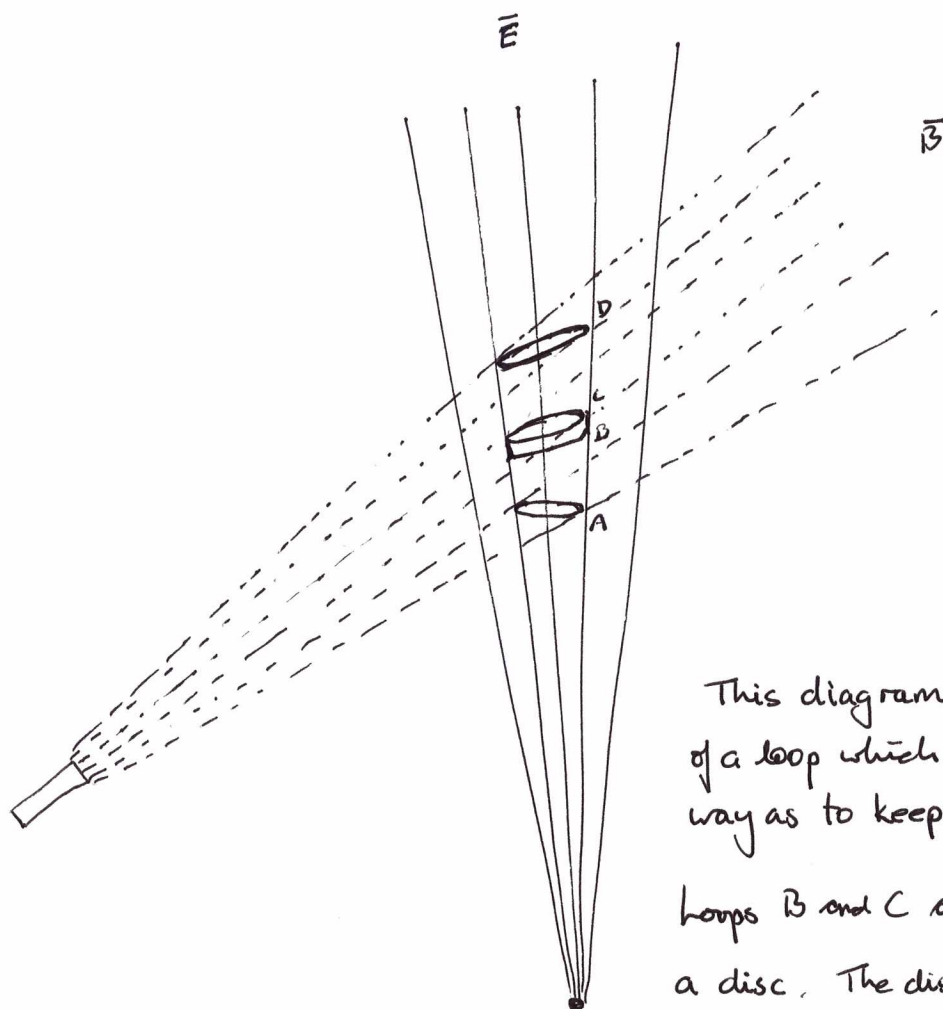 E̅
B̅
D
C
B
A
This diagram
of a loop which
way as to keep
Loops B and C
a disc. The dis